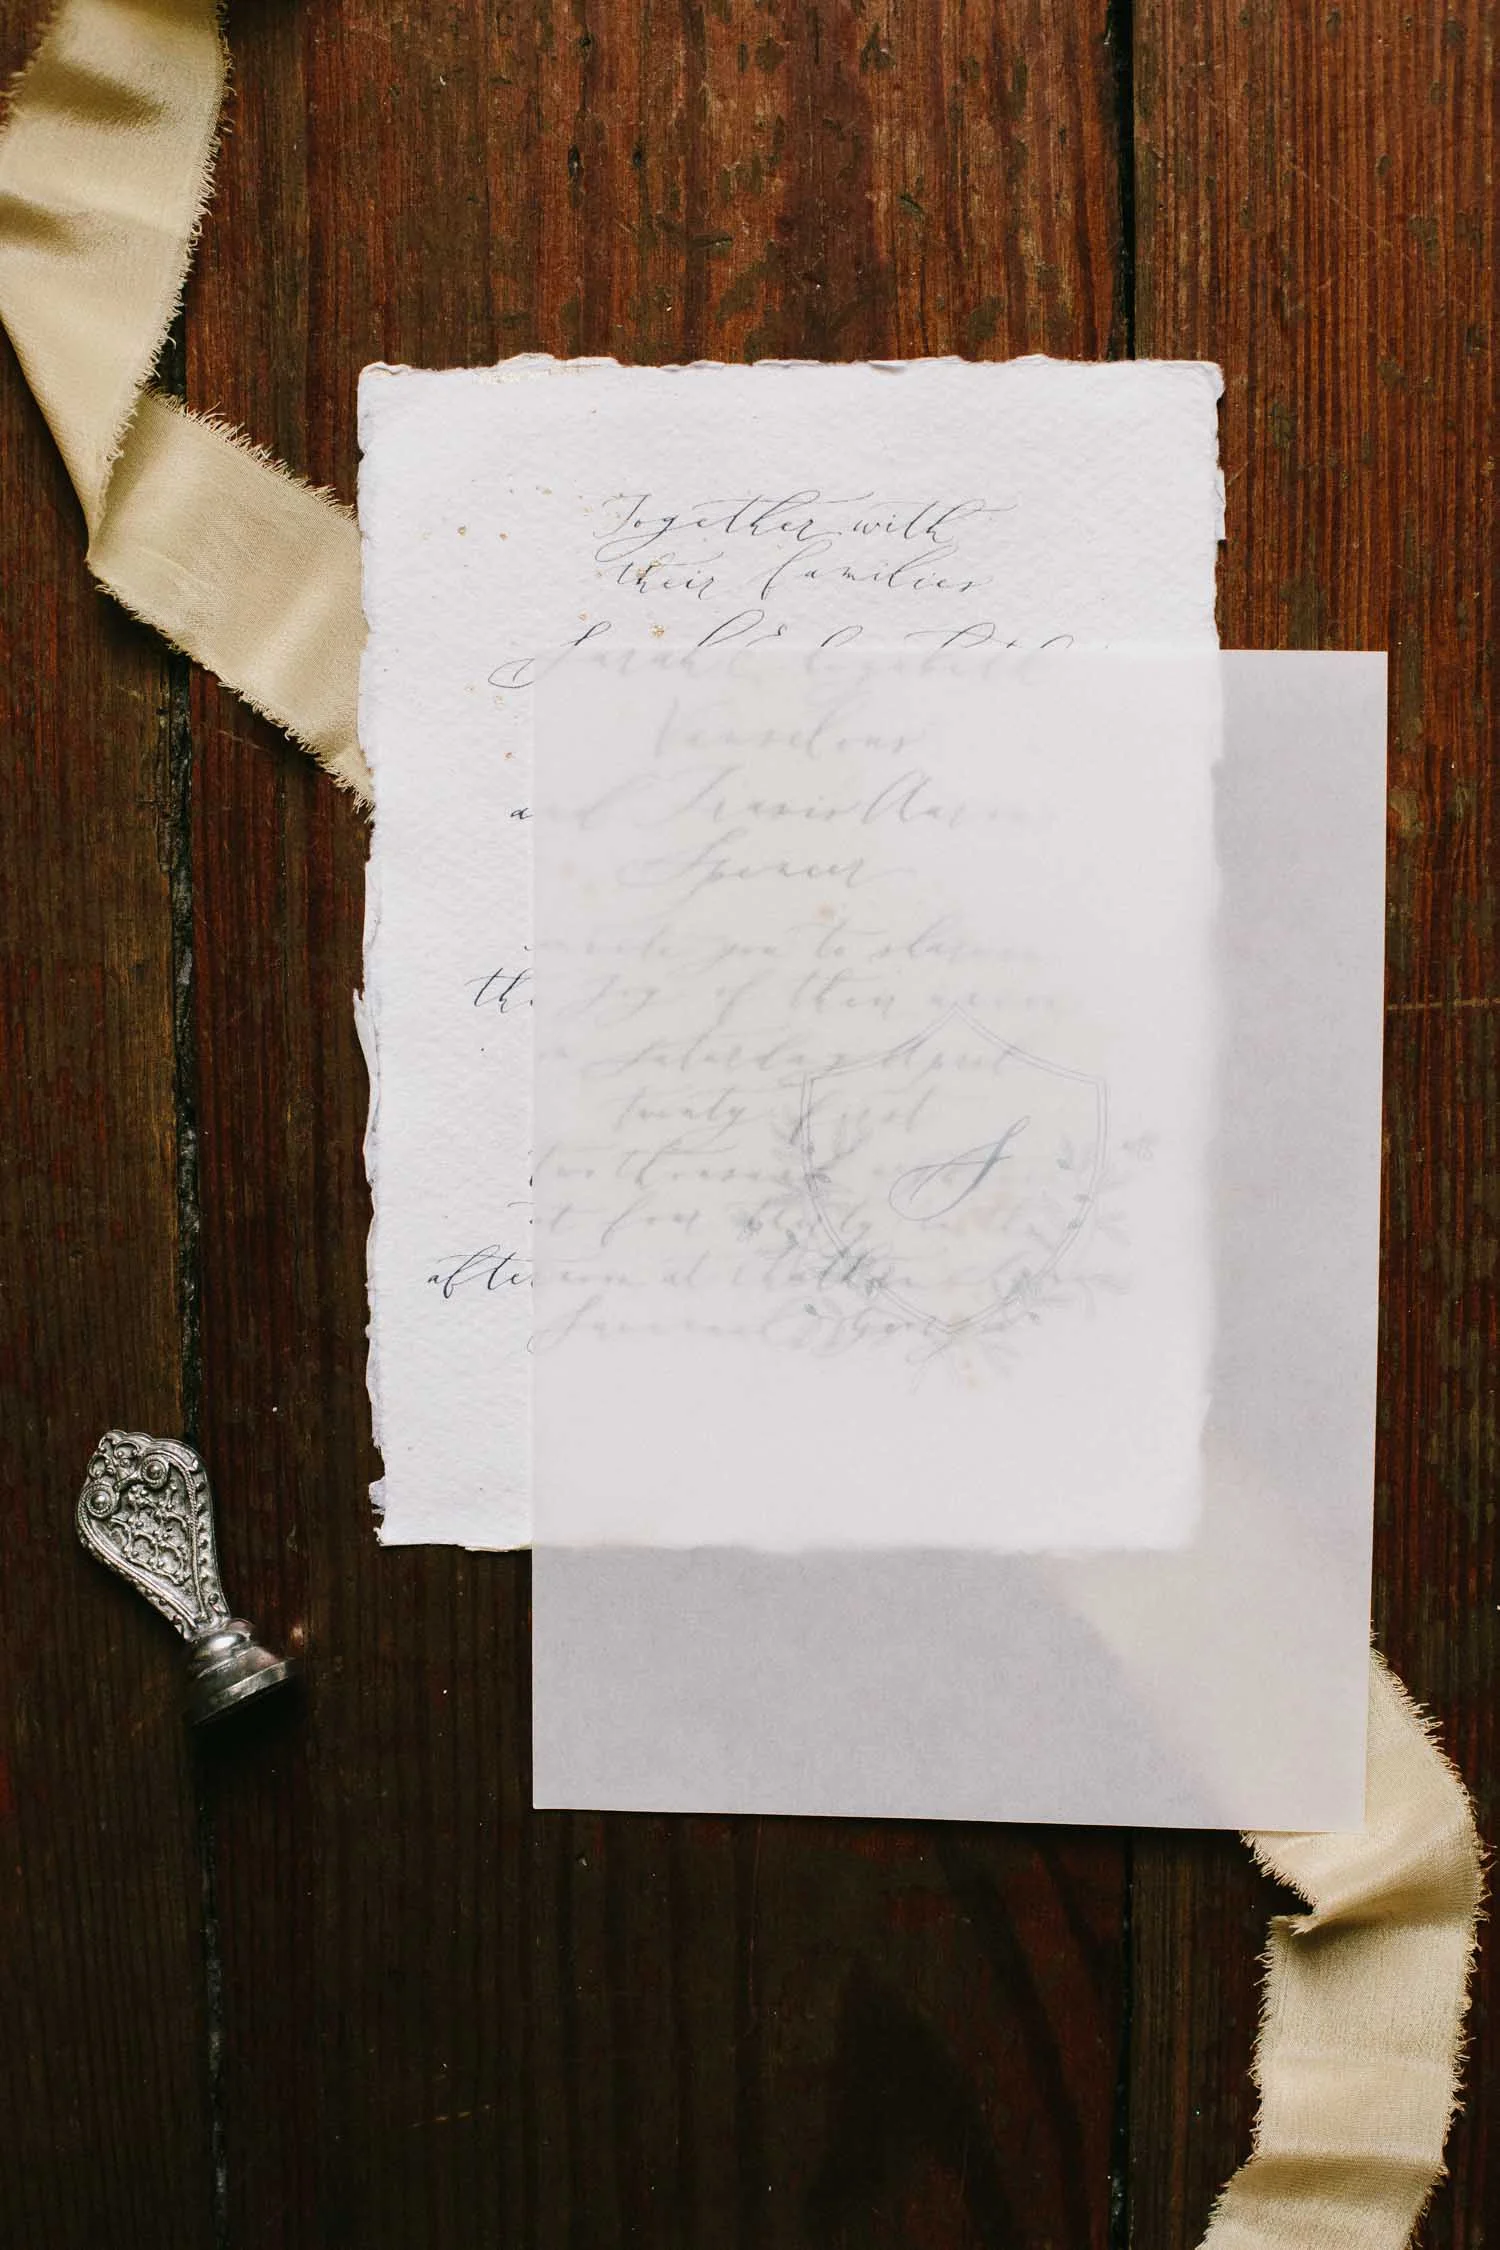 Together with
their families
Sarah Elizabeth
and Travis Aaron
Spencer
invite you to share in
the joy of their
on Saturday April
twenty first
two thousand
at four thirty in the
afternoon at
S